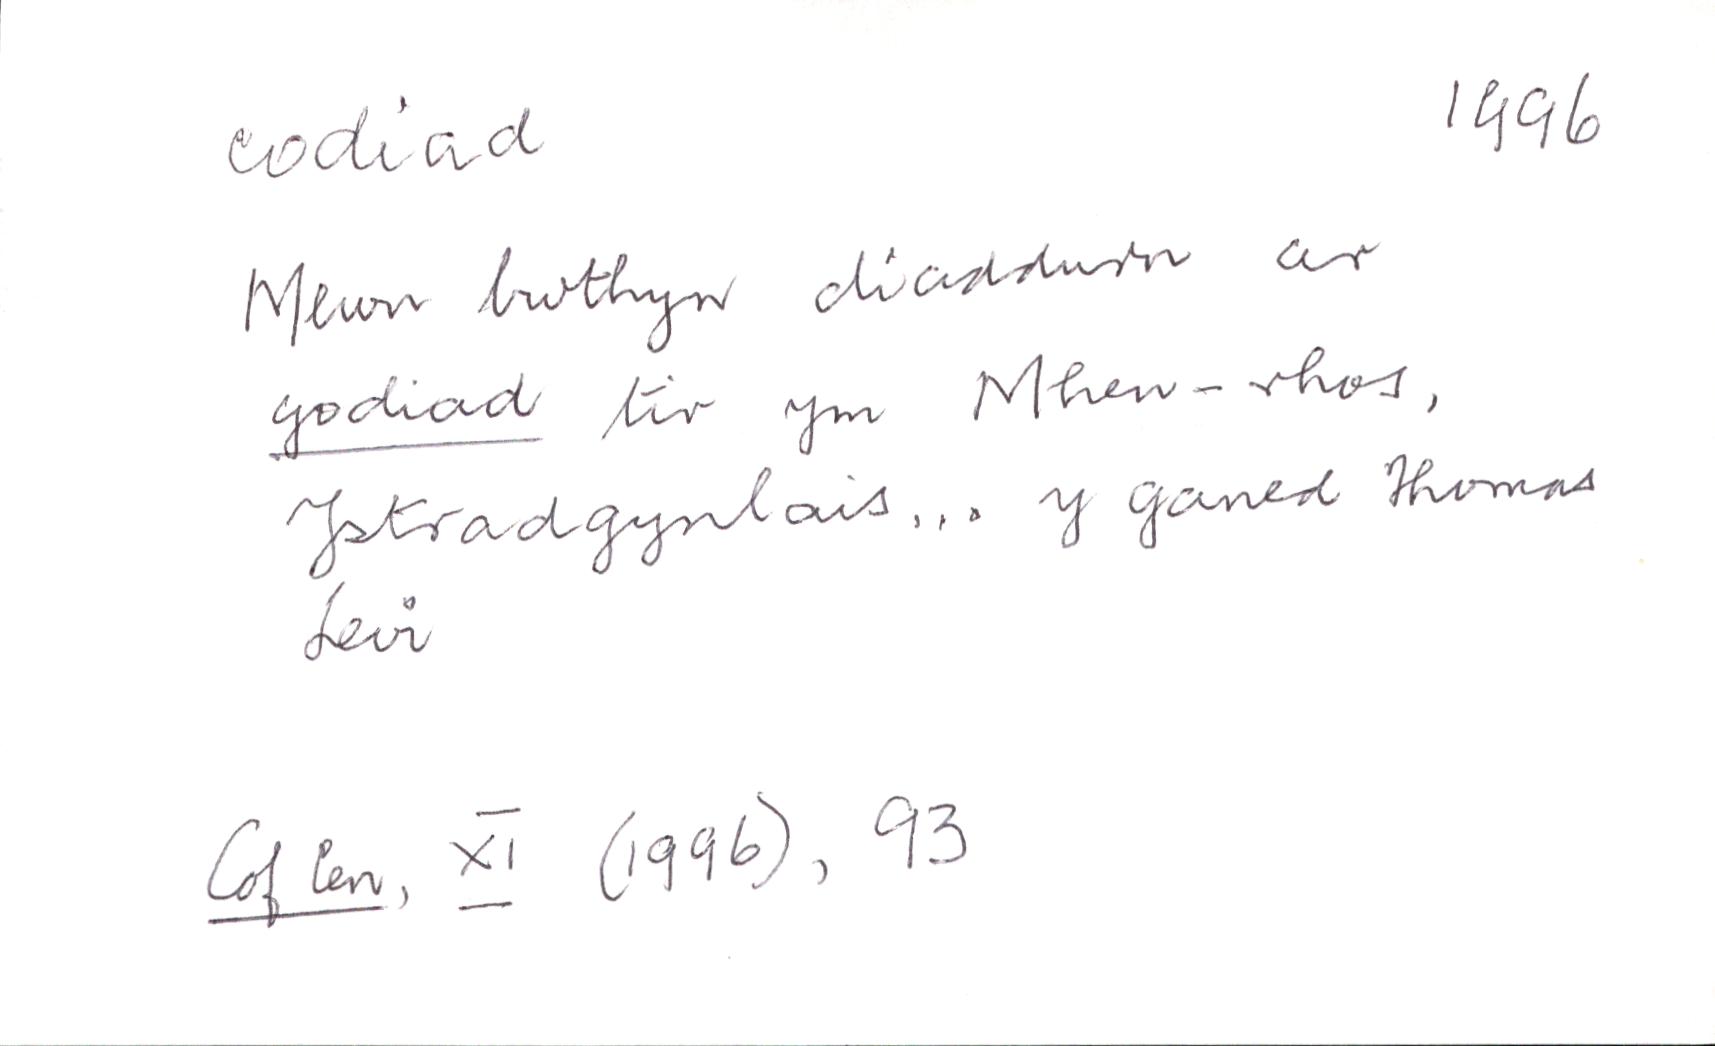 codiad 1996
Mewn bwthyn diaddurn ar
godiad tir ym Mhen-rhos,
Ystradgynlais... y ganed Thomas
Levi
Cof Cen, XI (1996), 93